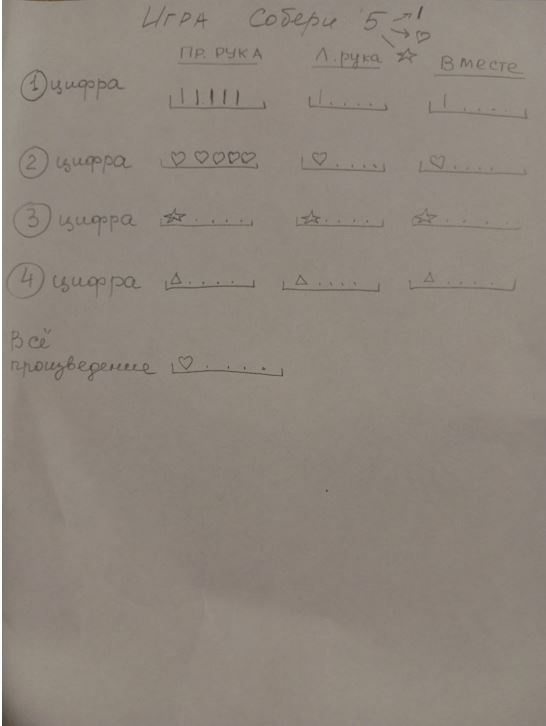 Игра Собери 5
ПР. РУКА Л. рука Вместе
1 цифра
2 цифра
3 цифра
4 цифра
Всё
произведение